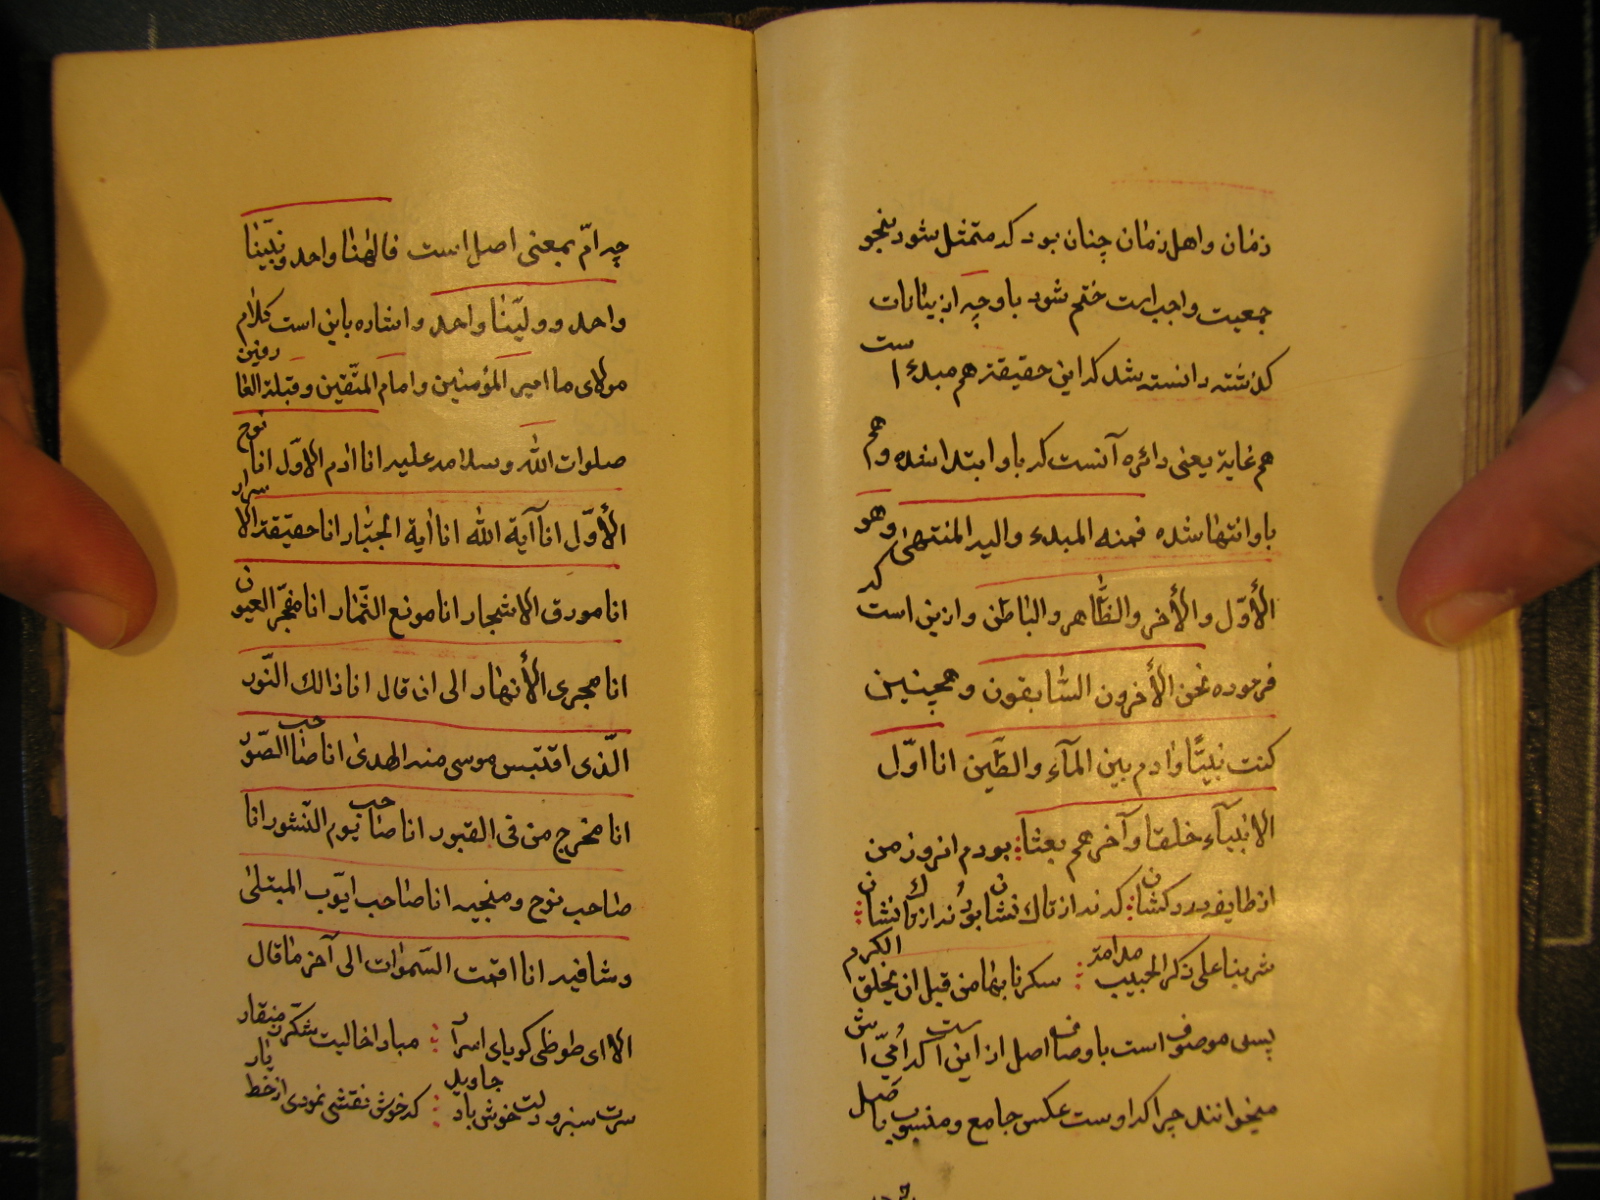 زمان واهل زمان چنان بود که متمثل شود بنحو
جمعیت واجب است ختم شود باوچه از بیانات
کذشته دانسته شد که این حقیقة هم مبدء است
هم غایة یعنی دائره آنست که باو ابتدا شده وهم
باو انتها شده فمنه المبدء والیه المنتهی وهو
الأوّل والأخر والظّاهر والباطن وازین است که
فرموده نحن الأخرون السّابقون وهمچنین
کنت نبیّاً وادم بین المآء والطّین انا اوّل
الانبیآء خلقا وآخرهم بعثا؛ بودم انروز من
از طایفه دردکشان؛ که نه از تاك نشان بود ونه از تاك نشان
شربنا علی ذکر الحبیب مدامة؛ سکرنا بها من قبل ان یخلق الکرم
پس موصوف است باوصاف اصل از این است که اُمیّ اش
میخوانند چرا که اوست عکس جامع ومنسوب باصل
چه امّ بمعنی اصل است فالهنا واحد ونبیّنا
واحد وولیّنا واحد واشاره باین است کلام
مولای ما امیر المؤمنین وامام المتّقین وقبلة العارفین
صلوات الله وسلامه علیه انا ادم الاوّل انا نوح
الأوّل انا آیة الله انا ایة الجبّار انا حقیقة الاسرار
انا مورق الاشجار انا مونع الثّمار انا مفجّر العیون
انا مجری الأنهار الی ان قال انا ذالك النّور
الّذی اقتبس موسی منه الهدی انا صاحب الصّور
انا مخرج من فی القبور انا صاحب یوم النّشور انا
صاحب نوح ومنجیه انا صاحب ایّوب المبتلی
وشافیه انا اقمت السّموات الی آخر ما قال
الا ای طوطی کویای اسرار؛ مبادا خالیت شکّر ز منقار
سرت سبز ودلت خوش باد جاوید؛ که خوش نقشی نمودی از خط یار